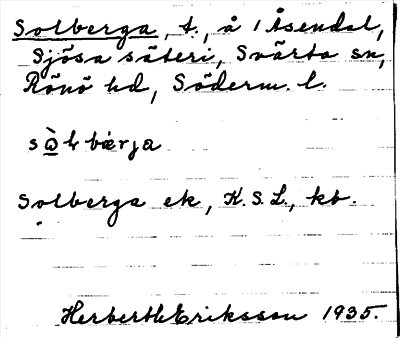 Solberga, t., å i Åsendal,
Sjösa säteri, Svärta sn,
Rönö hd, Söderm. l.
Solberga ek, K.S.L., kb.
Herbert Eriksson 1935.